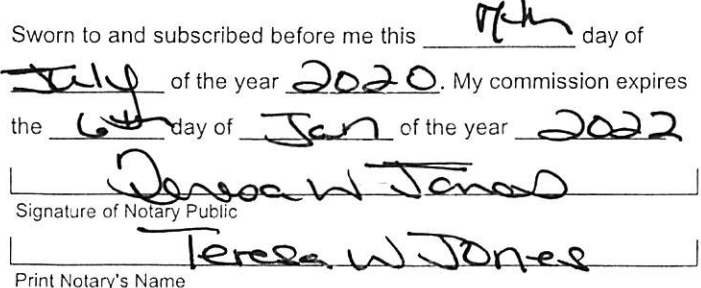 Sworn to and subscribed before me this 17th day of
July of the year 2020. My commission expires
the 6th day of Jan of the year 2022
Teresa W Jones
Signature of Notary Public
Teresa W Jones
Print Notary's Name